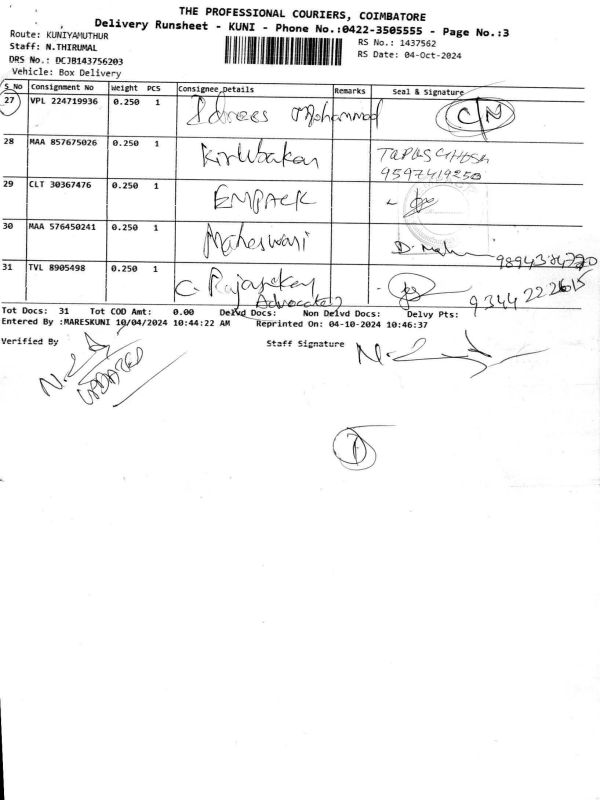 THE PROFESSIONAL COURIERS, COIMBATORE
Delivery Runsheet - KUNI - Phone No.:0422-3505555 - Page No.:3
Route: KUNIYAMUTHUR
RS No.: 1437562
Staff: N.THIRUMAL
RS Date: 04-Oct-2024
DRS No.: DCJB143756203
Vehicle: Box Delivery
S_No Consignment No Weight PCS Consignee,Details Remarks Seal & Signature
27 VPL 224719936 0.250 1 Idrees Mohammod C/N
28 MAA 857675026 0.250 1 TAPAS GHOSH
9597419250
29 CLT 30367476 0.250 1 EMPACK
30 MAA 576450241 0.250 1 Maheswari
31 TVL 8905498 0.250 1 C. Rajasekar
Advocate
9344222615
Tot Docs: 31 Tot COD Amt: 0.00 Delvd Docs: Non Delvd Docs: Delvy Pts:
Entered By :MARESKUNI 10/04/2024 10:44:22 AM Reprinted On: 04-10-2024 10:46:37
Verified By Staff Signature
UPDATED